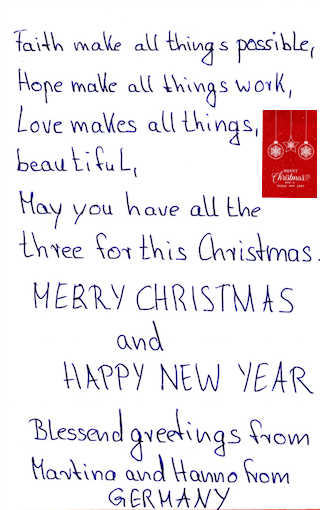 Faith make all things possible,
Hope make all things work,
Love makes all things,
beautiful,
May you have all the
three for this Christmas.
MERRY CHRISTMAS
and
HAPPY NEW YEAR
Blessend greetings from
Martina and Hanno from
GERMANY
MERRY
Christmas
and a
happy new year